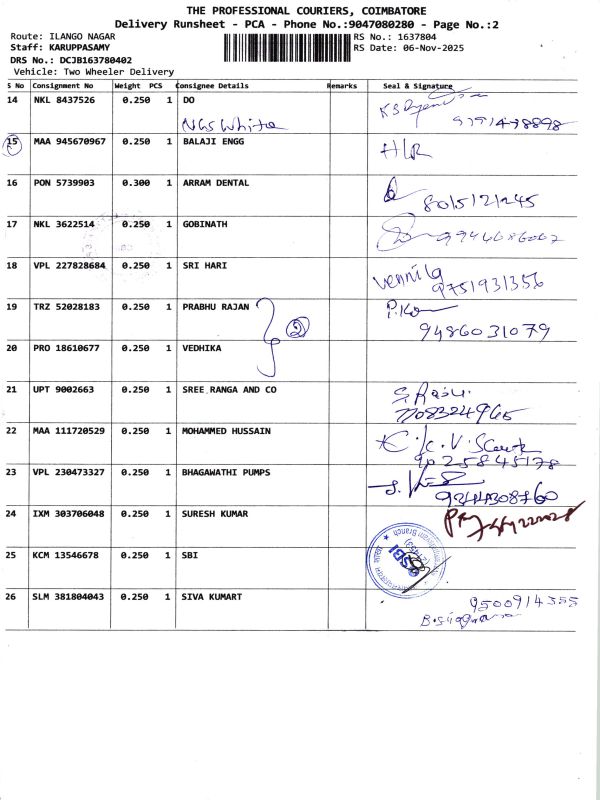 THE PROFESSIONAL COURIERS, COIMBATORE
Delivery Runsheet - PCA - Phone No.:9047080280 - Page No.:2
Route: ILANGO NAGAR RS No.: 1637804
Staff: KARUPPASAMY RS Date: 06-Nov-2025
DRS No.: DCJB163780402
Vehicle: Two Wheeler Delivery
S No Consignment No Weight PCS Consignee Details Remarks Seal & Signature
14 NKL 8437526 0.250 1 DO
15 MAA 945670967 0.250 1 BALAJI ENGG HLR
16 PON 5739903 0.300 1 ARRAM DENTAL
8015121245
17 NKL 3622514 0.250 1 GOBINATH
9944686062
18 VPL 227828684 0.250 1 SRI HARI
Vennila
9751931356
19 TRZ 52028183 0.250 1 PRABHU RAJAN
2
9486031079
20 PRO 18610677 0.250 1 VEDHIKA
21 UPT 9002663 0.250 1 SREE RANGA AND CO
22 MAA 111720529 0.250 1 MOHAMMED HUSSAIN
9025845178
23 VPL 230473327 0.250 1 BHAGAWATHI PUMPS
24 IXM 303706048 0.250 1 SURESH KUMAR
25 KCM 13546678 0.250 1 SBI
SBI
26 SLM 381804043 0.250 1 SIVA KUMART
9500914355